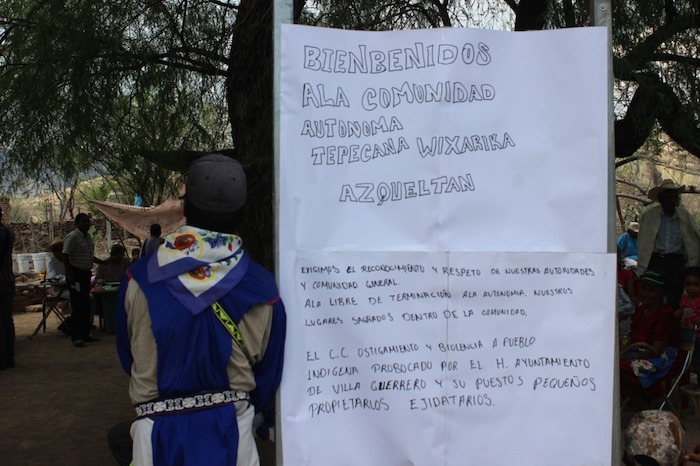 BIENBENIDOS
ALA COMUNIDAD
AUTONOMA
TEPECANA WIXARIKA
AZQUELTAN
EXIGIMOS EL RECONOCIMIENTO Y RESPETO DE NUESTRAS AUTORIDADES
Y COMUNIDAD GENERAL.
ALA LIBRE DE TERMINACIÓN ALA AUTONOMIA. NUESTROS
LUGARES SAGRADOS DENTRO DE LA COMUNIDAD.
EL C.C. OSTIGAMIENTO Y BIOLENCIA A PUEBLO
INDIGENA PROBOCADO POR EL H. AYUNTAMIENTO
DE VILLA GUERRERO Y SU PUESTOS PEQUEÑOS
PROPIETARIOS EJIDATARIOS.